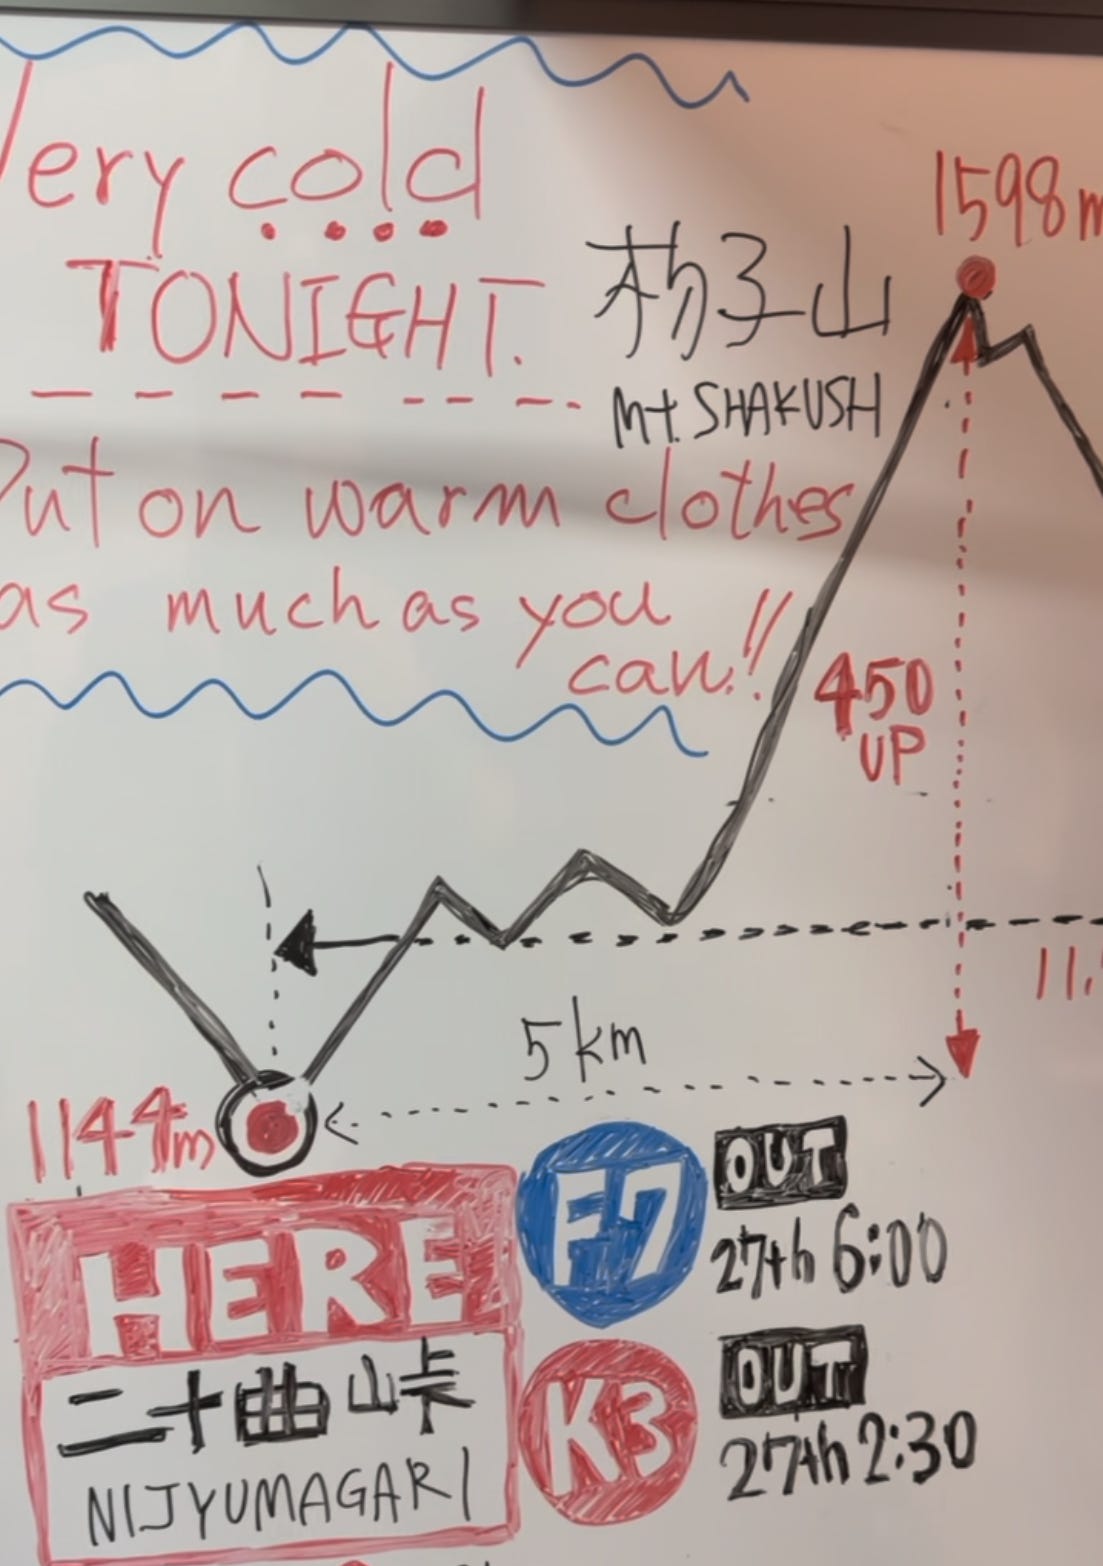 Very cold
TONIGHT.
Put on warm clothes
as much as you
can!!
1598m
杓子山
Mt. SHAKUSH
450
UP
11.
5km
1144m
HERE
二十曲峠
NIJYUMAGARI
F7
OUT
27th 6:00
K3
OUT
27th 2:30